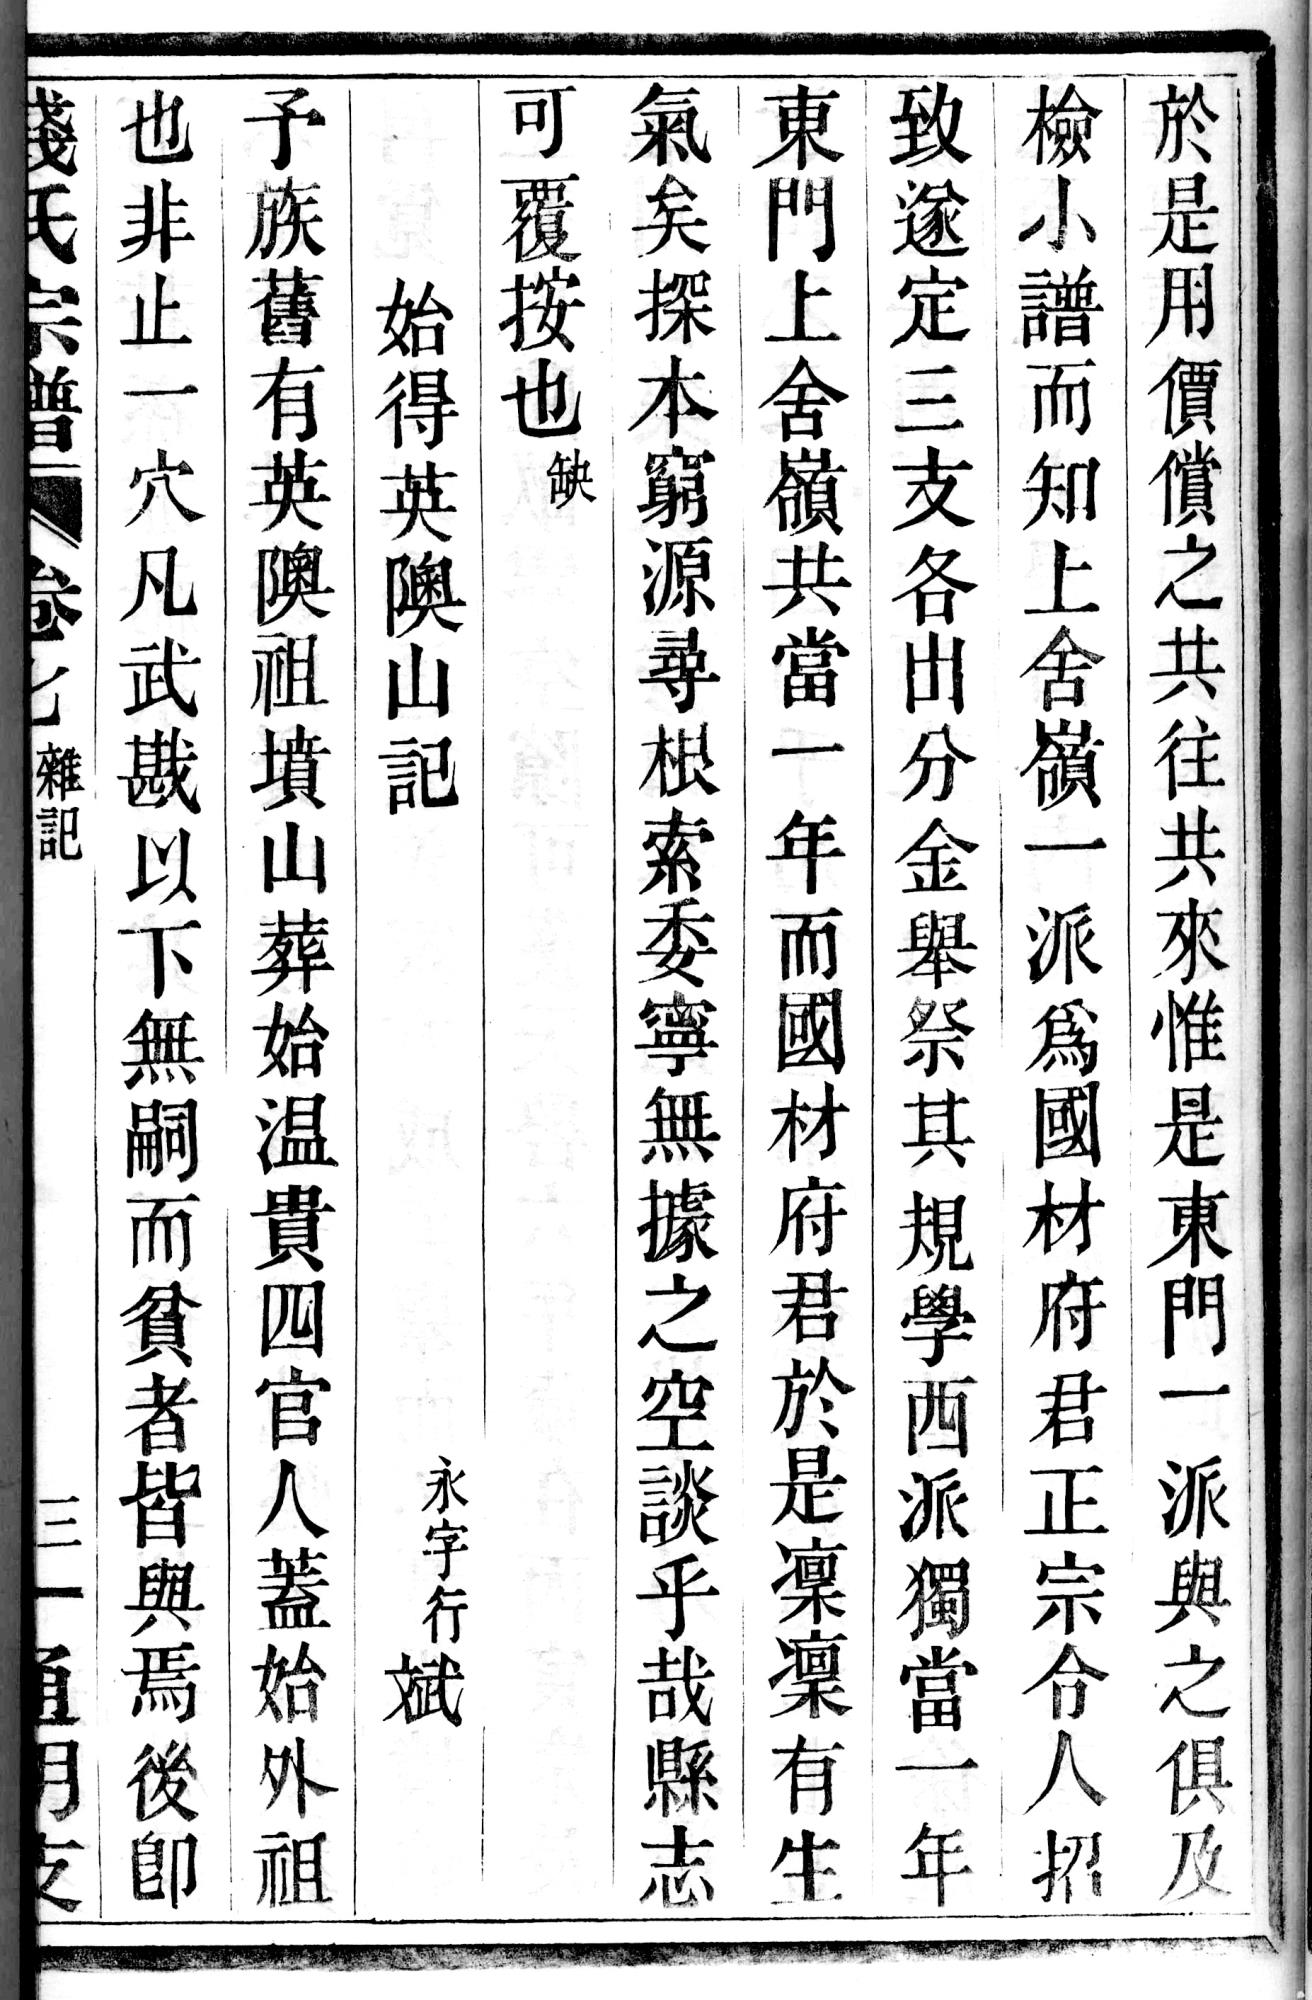 於是用價償之共往共來惟是東門一派與之俱及
檢小譜而知上舍嶺一派爲國材府君正宗令人招
致遂定三支各出分金舉祭其規學西派獨當一年
東門上舍嶺共當一年而國材府君於是凜凜有生
氣矣探本窮源尋根索委寧無據之空談乎哉縣志
可覆按也缺
始得英隩山記
永字行斌
予族舊有英隩祖墳山葬始温貴四官人蓋始外祖
也非止一穴凡武戡以下無嗣而貧者皆與焉後卽
錢氏宗譜 卷七 雜記 三一 通明支